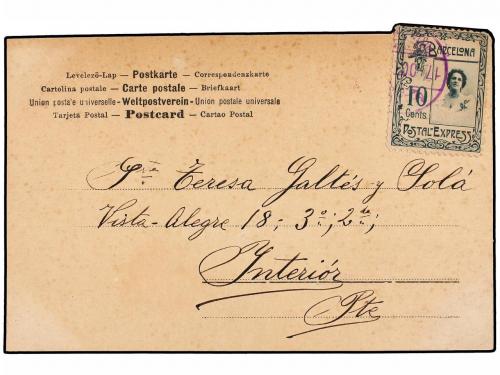 Levelező-Lap — Postkarte — Correspondenzkarte
Cartolina postale — Carte postale — Briefkaart
Union postale universelle - Weltpostverein - Union postale universale
Tarjeta Postal — Postcard — Cartao Postal
BARCELONA
17
10
Cents.
POSTAL-EXPRESS
Sra. Teresa Galtés y Solá
Vista-Alegre 18; 3º; 2da;
Interiór
Pte